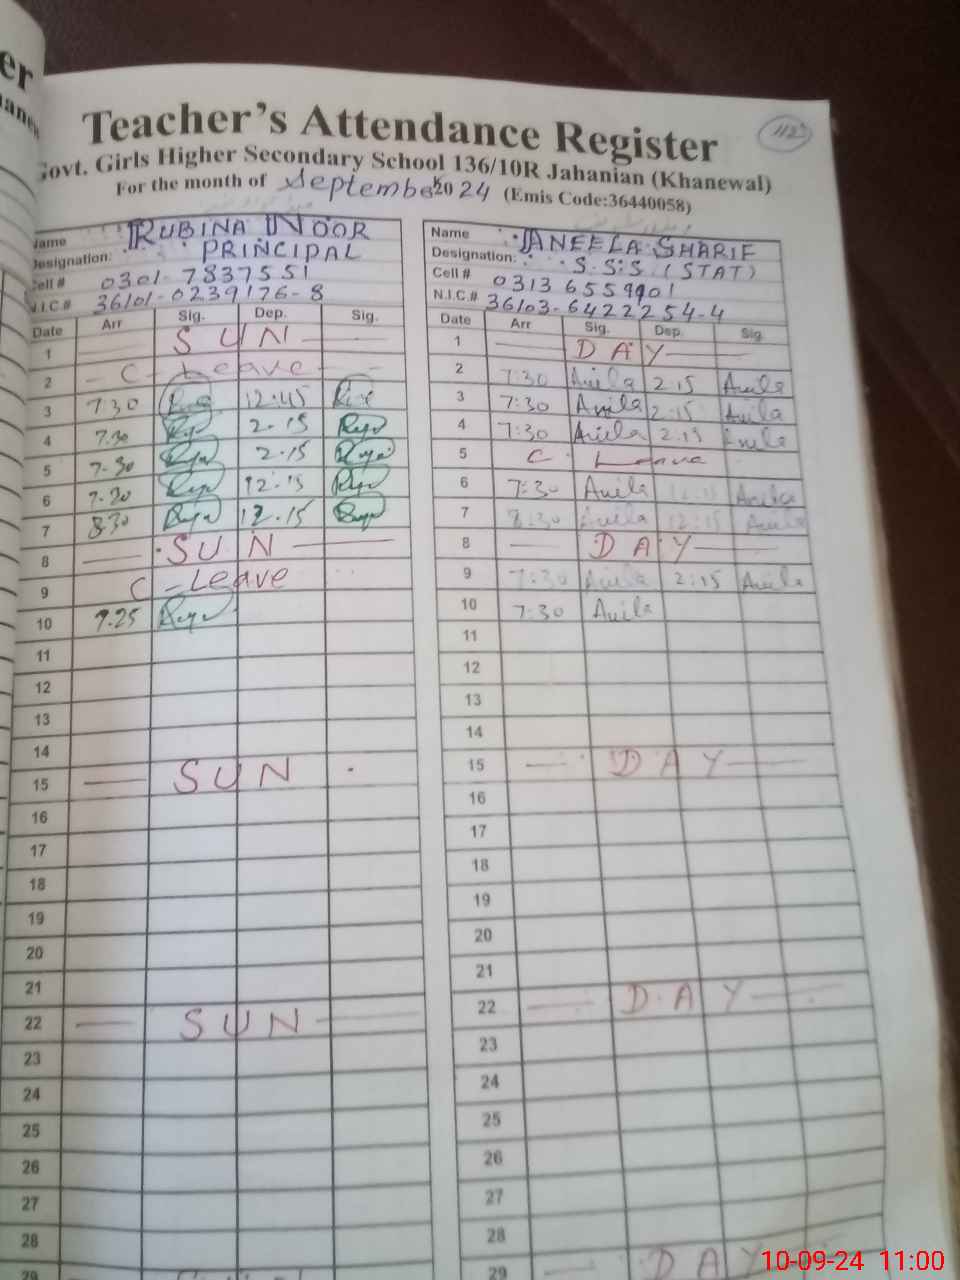 er
Teacher's Attendance Register
112
Govt. Girls Higher Secondary School 136/10R Jahanian (Khanewal)
For the month of September 2024 (Emis Code:36440058)
Name RUBINA NOOR
Designation: PRINCIPAL
Cell # 0301-7837551
N.I.C.# 36101-0239176-8
Date Arr Sig. Dep. Sig.
1 SUN
2 C-Leave
3 7:30 12:45
4 7:30 2.15
5 7-30 2.15
6 7.30 12.15
7 8:30 12.15
8 SUN
9 C-Leave
10 9.25
11
12
13
14
15 SUN
16
17
18
19
20
21
22 SUN
23
24
25
26
27
28
29
Name ANEELA SHARIF
Designation: S.S.S (STAT)
Cell # 0313 6559901
N.I.C.# 36103-6422254-4
Date Arr Sig. Dep. Sig
1 DAY
2 7:30 Anila 2:15 Anila
3 7:30 Anila 2:15 Anila
4 7:30 Anila 2:15 Anila
5 C. Leave
6 7:30 Anila 12:15 Anila
7 8:30 Anila 12:15 Anila
8 DAY
9 7:30 Anila 2:15 Anila
10 7:30 Anila
11
12
13
14
15 DAY
16
17
18
19
20
21
22 DAY
23
24
25
26
27
28
29 DAY
10-09-24 11:00